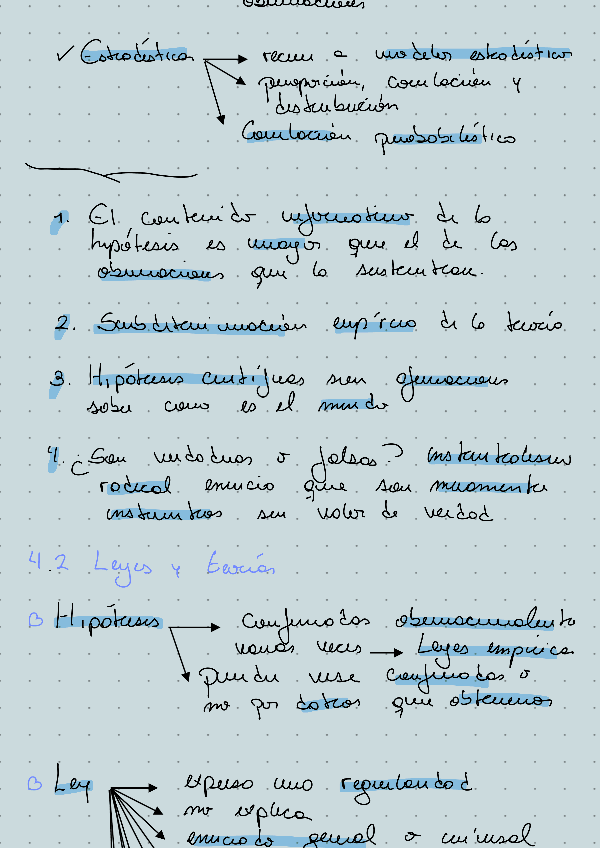 observaciones
✓ Estadística → recurre a modelos estadísticos
→ proporción, correlación y
distribución
→ Correlación probabilística
1. El contenido informativo de la
hipótesis es mayor que el de las
observaciones que la sustentan.
2. Subdeterminación empírica de la teoría
3. Hipótesis científicas son afirmaciones
sobre como es el mundo
4. ¿Son verdaderas o falsas? instrumentalismo
radical enuncia que son meramente
instrumentos sin valor de verdad
4.2 Leyes y teorías
Hipótesis → confirmadas observacionalmente
varias veces → Leyes empíricas
→ pueden verse confirmadas o
no por datos que obtenemos
Ley → expresa una regularidad
→ no explica
→ enunciado general o universal